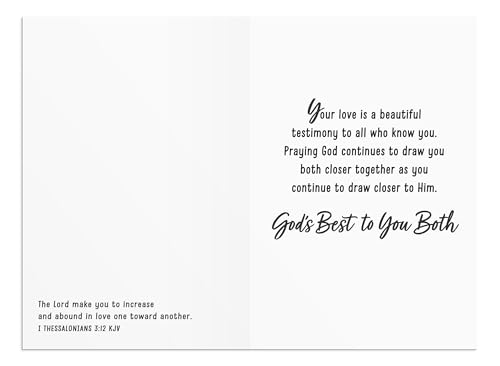 The Lord make you to increase
and abound in love one toward another.
I THESSALONIANS 3:12 KJV
Your love is a beautiful
testimony to all who know you.
Praying God continues to draw you
both closer together as you
continue to draw closer to Him.
God's Best to You Both